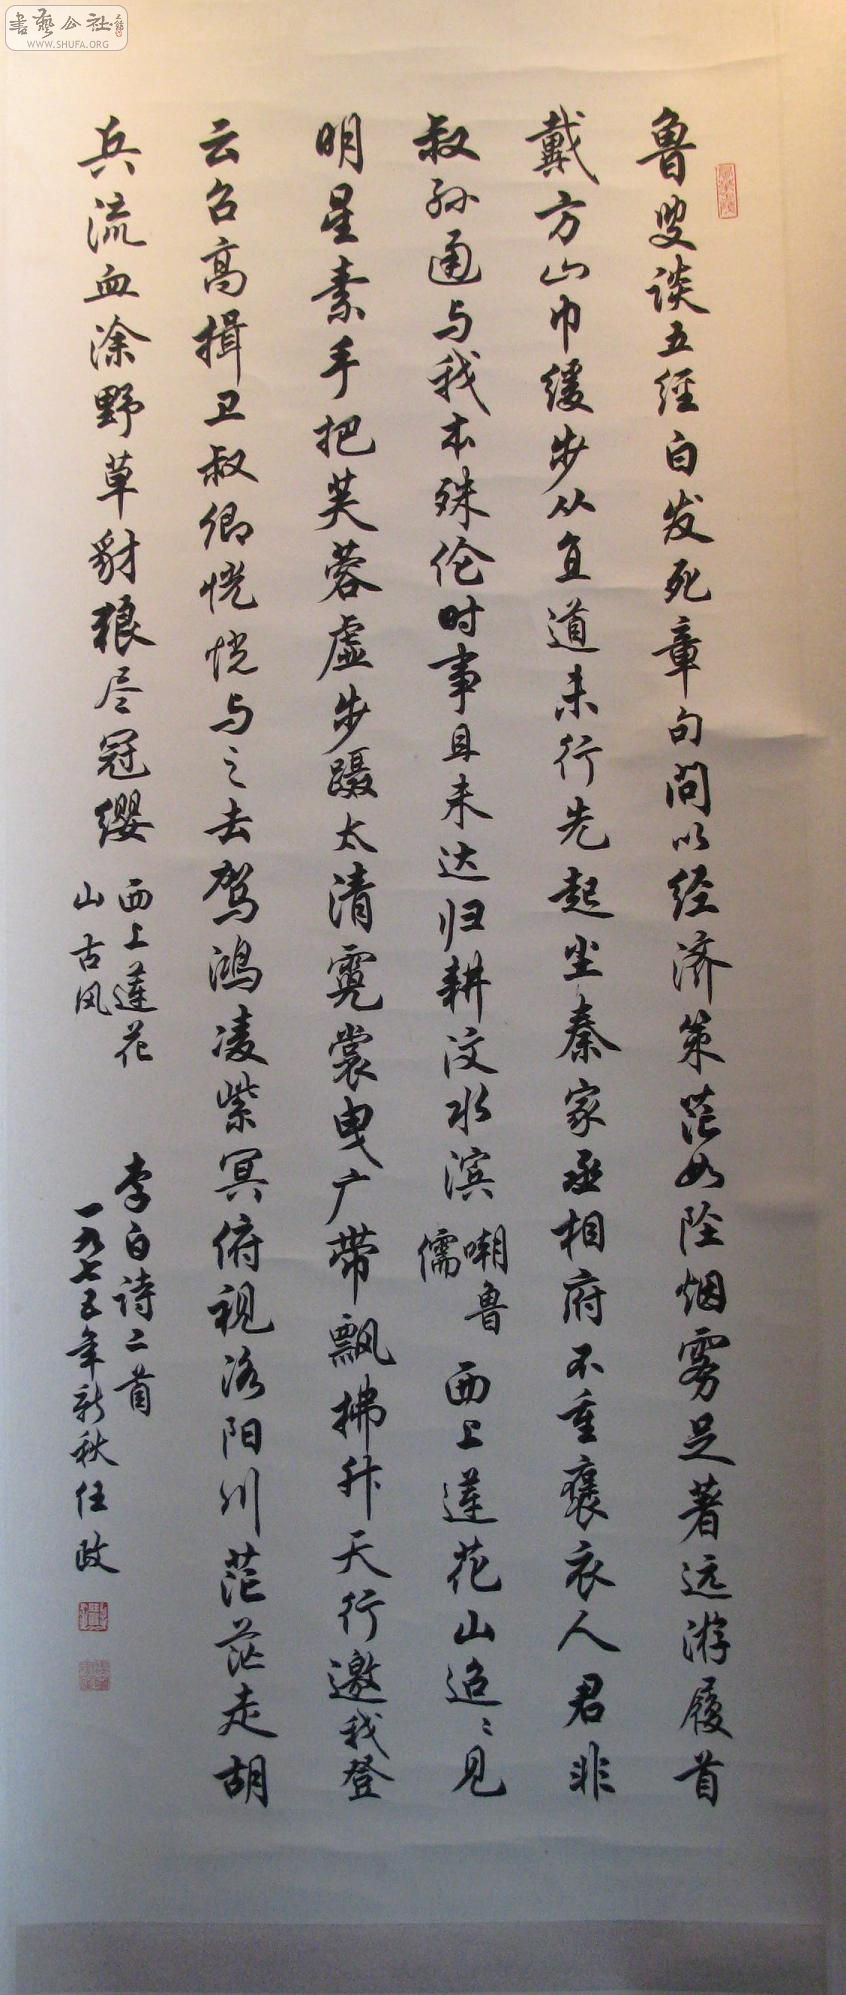 鲁叟谈五经白发死章句问以经济策茫如坠烟雾足著远游履首
戴方山巾缓步从直道未行先起尘秦家丞相府不重褒衣人君非
叔孙通与我本殊伦时事且未达归耕汶水滨 嘲鲁儒 西上莲花山迢〻见
明星素手把芙蓉虚步蹑太清霓裳曳广带飘拂升天行邀我登
云台高揖卫叔卿恍恍与之去驾鸿凌紫冥俯视洛阳川茫茫走胡
兵流血涂野草豺狼尽冠缨
西上莲花
山古风
李白诗二首
一九七五年新秋任政
書藝公社
WWW.SHUFA.ORG